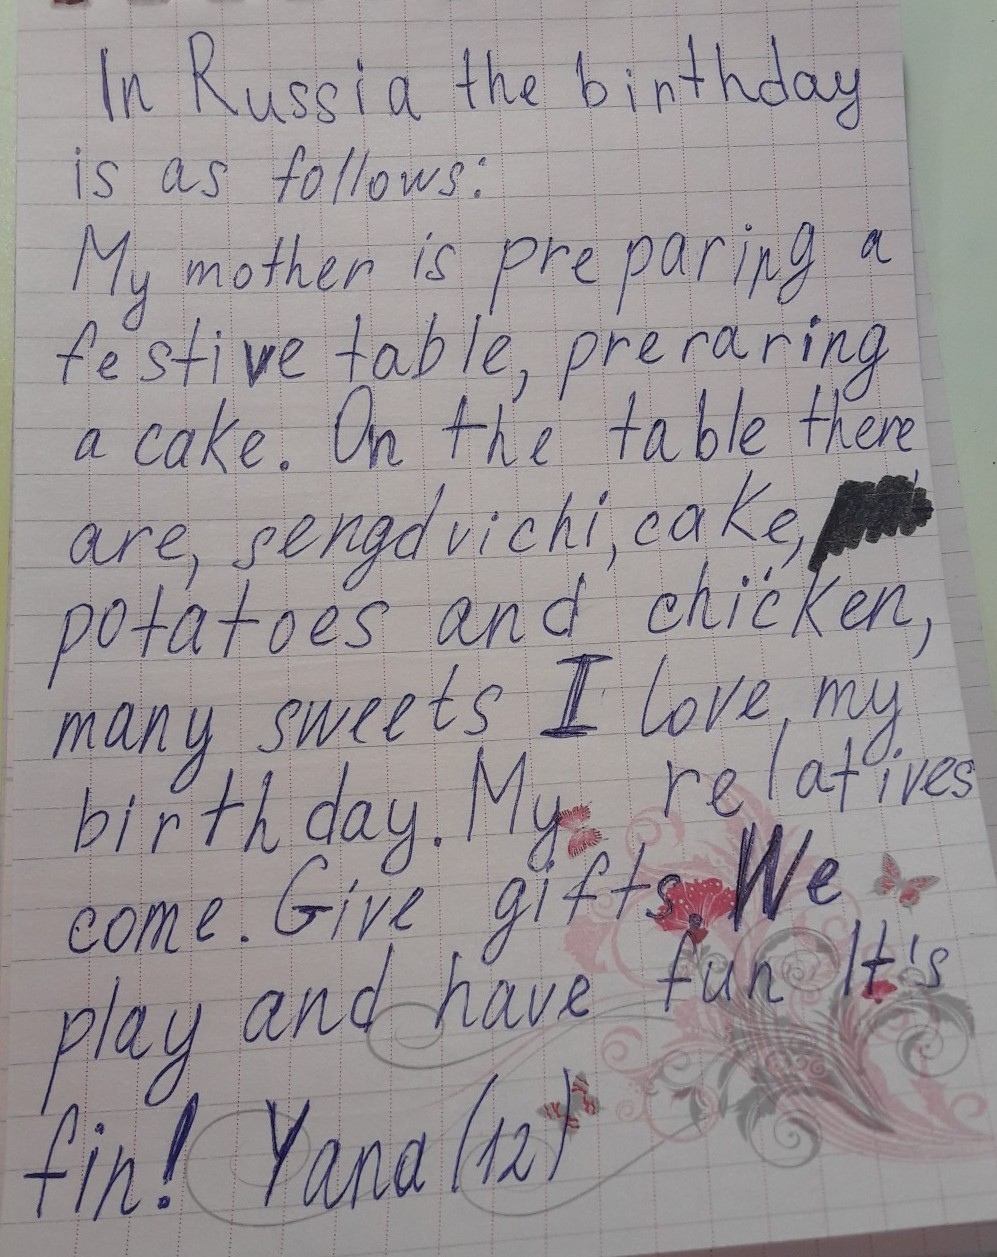 In Russia the birthday
is as follows:
My mother is preparing a
festive table, preraring
a cake. On the table there
are, sengdvichi, cake,
potatoes and chicken,
many sweets I love my
birthday. My relatives
come. Give gifts. We
play and have fun It's
fin! Yana (12)